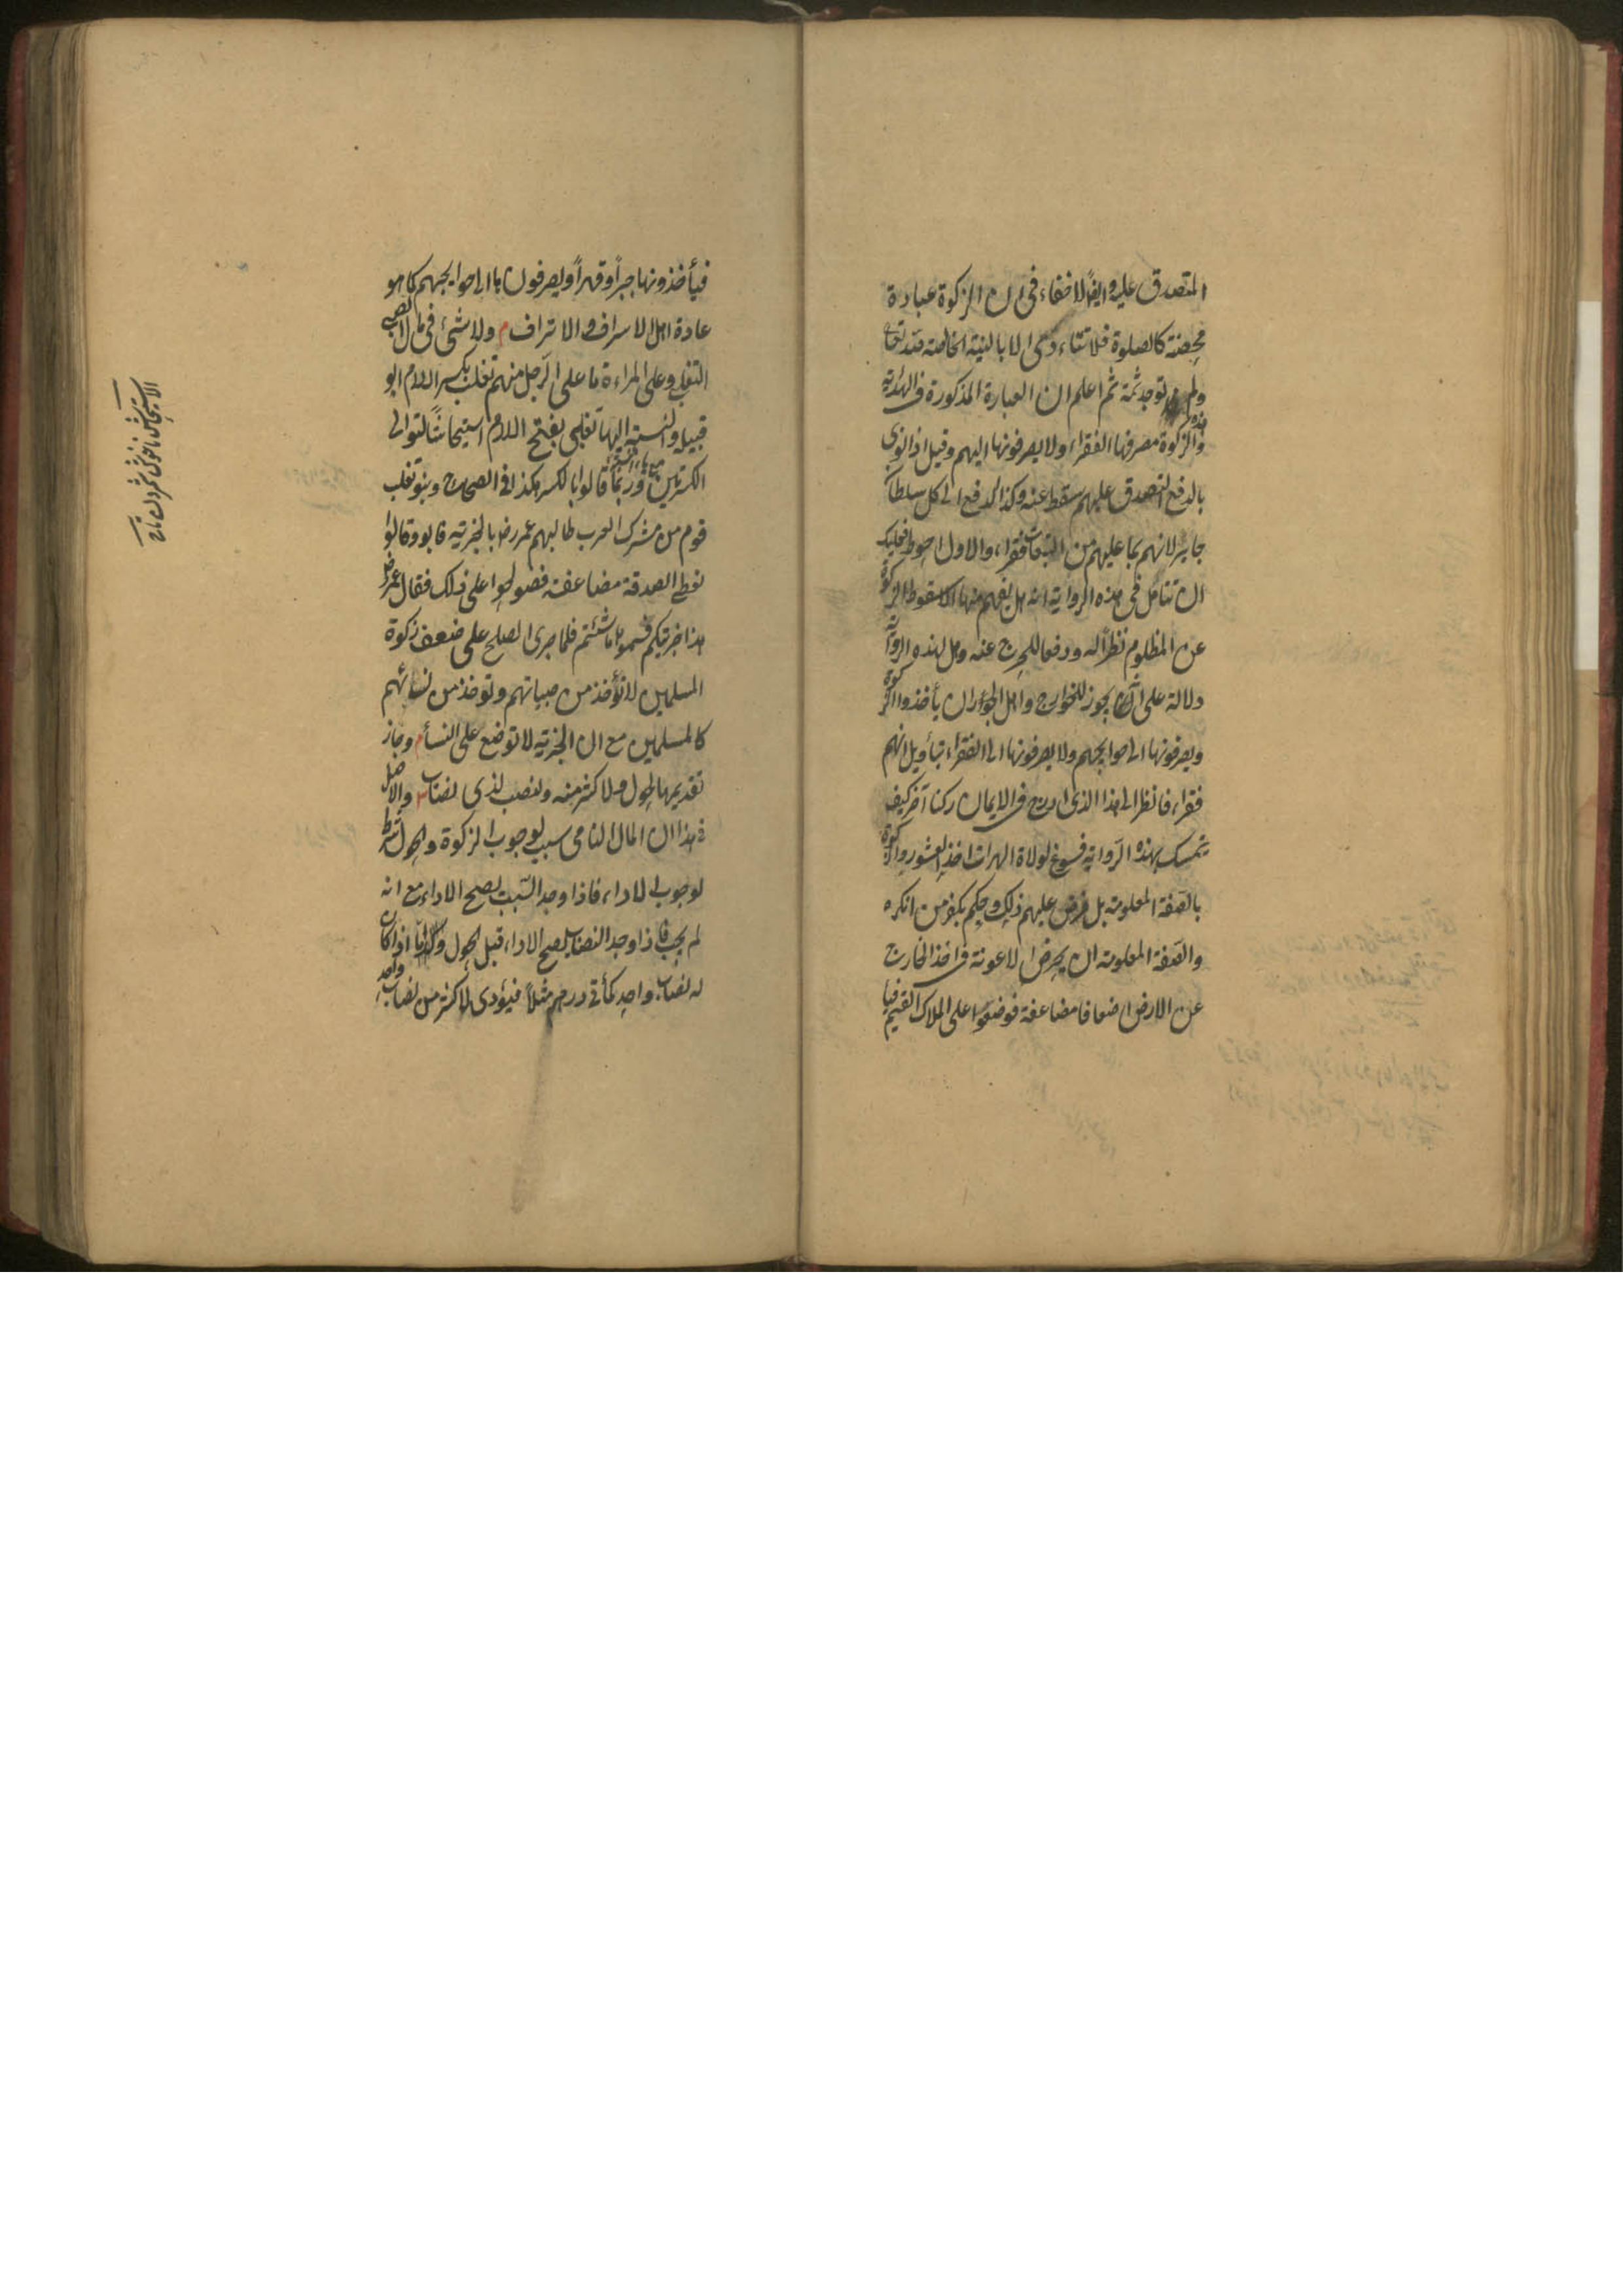 المتصدق عليه وايضاً لا خفاء فى ان الزكوة عبادة
محضة كالصلوة فلا تتاءدى الا بالنية الخالصة لله تعالى
ولم توجد ثمة ثم اعلم ان العبارة المذكورة فى الهداية هذه
والزكوة مصرفها الفقراء ولا يصرفونها اليهم وقيل اذا نوى
بالدفع التصدق عليهم سقط عنه وكذا الدفع الى كل سلطان
جاير لانهم بما عليهم من التبعات فقراء والاول احوط فعليك
ان تتامل فى هذه الرواية انه هل يفهم منها الا سقوط الزكوة
عن المظلوم نظراً له ودفعا للحرج عنه وهل لهذه الرواية
دلالة على انه يجوز للخوارج واهل الجور ان يأخذوا الزكوة
ويصرفونها الى حوايجهم ولا يصرفونها الى الفقراء بتأويل انهم
فقراء فانظر الى هذا الذى ادرج فى الايمان ركنا آخر كيف
يتمسك بهذه الرواية فسوغ لولاة الهرات اخذ العشور والزكوة
بالصفة المعلومة بل فرض عليهم ذلك وحكم بكفر من انكره
والصفة المعلومة ان يحرض الاعونة فى اخذ الخارج
عن الارض اضعافا مضاعفة فوضعوا على الملاك القيم فيا
فيأخذونها جبراً وقهراً ويصرفونها الى حوايجهم كما هو
عادة اهل الاسراف والاتراف م ولا شئ فى مال الصبى
التغلبى وعلى المراءة ما على الرجل منهم تغلب بكسر اللام ابو
قبيلة والنسبة اليها تغلبى بفتح اللام استيحاشاً لتوالى
الكسرتين مع ياء النسبة وربما قالوا بالكسر هكذا فى الصحاح وبنو تغلب
قوم من مشركى العرب طالبهم عمر رض بالجزية فابوا وقالوا
نعطى الصدقة مضاعفة فصولحوا على ذلك فقال عمر رض
هذا جزيتكم فسموها ما شئتم فلما جرى الصلح على ضعف زكوة
المسلمين لا تؤخذ من صبيانهم وتوخذ من نسائهم
كالمسلمين مع ان الجزية لا توضع على النسأ م وجاز
تقديمها لحول ولاكثر منه ولنصب لذى نصاب ش والاصل
فى هذا ان المال النامى سبب لوجوب الزكوة والحول شرط
لوجوب الاداء فاذا وجد السبب يصح الاداء مع انه
لم يجب فاذا وجد النصاب يصح الاداء قبل الحول وكذا اذا كان
له نصاب واحد كمأتى درهم مثلاً فيؤدى لاكثر من نصاب واحد